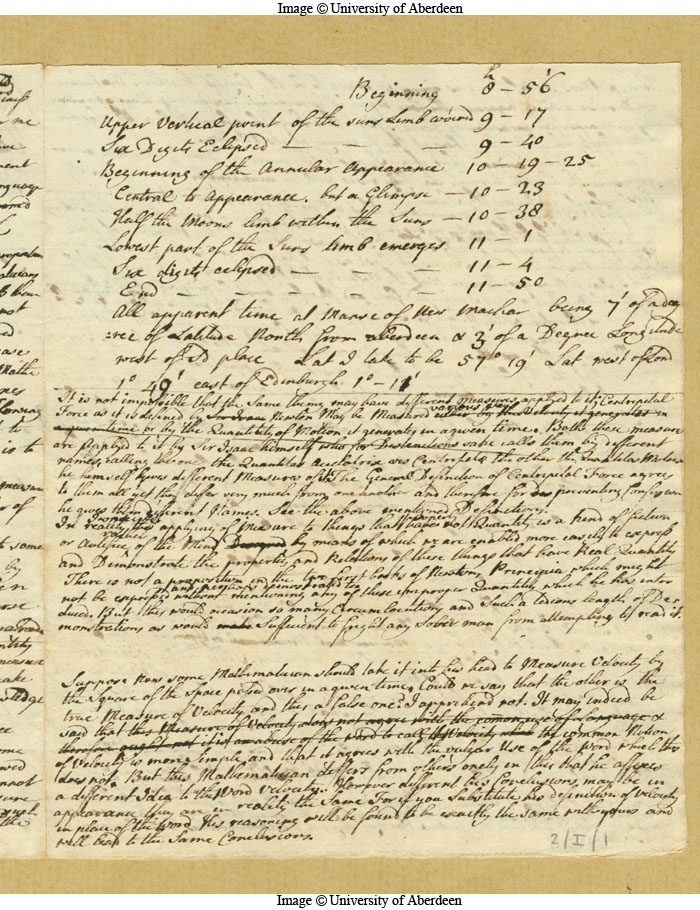 Image © University of Aberdeen
Beginning 8h – 56'
Upper Vertical point of the suns Limb 9 – 17
Six Digits Eclipsed — — — 9 – 40
Beginning of the Annular Appearance 10 – 19 – 25
Central to Appearance. but a Glimpse – 10 – 23
Half the Moons limb within the Suns – 10 – 38
Lowest part of the Suns limb emerges 11 – 1
Six digits eclipsed — — — 11 – 4
End — — — — 11 – 50
All apparent time at Manse of New Machar being 7' of a deg
:ree of Latitude North from aberdeen & 3' of a Degree Longitude
west of sd place Lat I take to be 57° 19' Lat west of Lond
1° 49' east of Edinburgh 1° – 11'
It is not impossible that the same thing may have different measures applied to it; Centripetal
Force as it is defined by Newton May be Measured various ways either by the Velocity it generates in
a given time or by the Quantity of Motion it generates in a given time. Both these measures
are applied to it by Sir Isaac himself who for Distinctions sake calls them by different
names calling the one the Quantitas Acceleratrix vis Centripetæ the other the Quantitas Motrix
he himself gives different Measures of it The General Definition of Centripetal Force agrees
to them all yet they differ very much from one another and therefore for preventing Confusion
he gives them different Names. See the above mentioned Definitions.
In reality this applying of Measure to things that properly have not Quantity is a kind of fiction
or Artifice of the Mind by means of which we are enabled more easily to express
and Demonstrate the properties and Relations of these things that have Real Quantity
There is not a proposition in the two first books of Newtons Principia which might
not be expressd and perhaps demonstrated without mentioning any of these improper Quantitys which he has intro
duced. But this would occasion so many Circumlocutions and Such a tedious length of De:
monstrations as would make Sufficient to fright any Sober man from attempting to read it.
Suppose now some Mathematician should take it into his head to Measure Velocity by
the Square of the space passed over in a given time, Could we say that the other is the
true Measure of Velocity and this a false one? I apprehend not. It may indeed be
said that this Measure of Velocity does not agree with the common use of Language &
therefore ought not it is an abuse of the word to call it Velocity the common Notion
of Velocity is more simple and that it agrees with the vulgar Use of the Word which this
does not. But this Mathematician differs from others onely in this that he affixes
a different Idea to the Word Velocity. However different his Conclusions may be in
appearance they are in reality the Same For if you Substitute his definition of Velocity
in place of the Word His reasoning will be found to be exactly the same with yours and
will lead to the Same Conclusions.
2/I/1
Image © University of Aberdeen